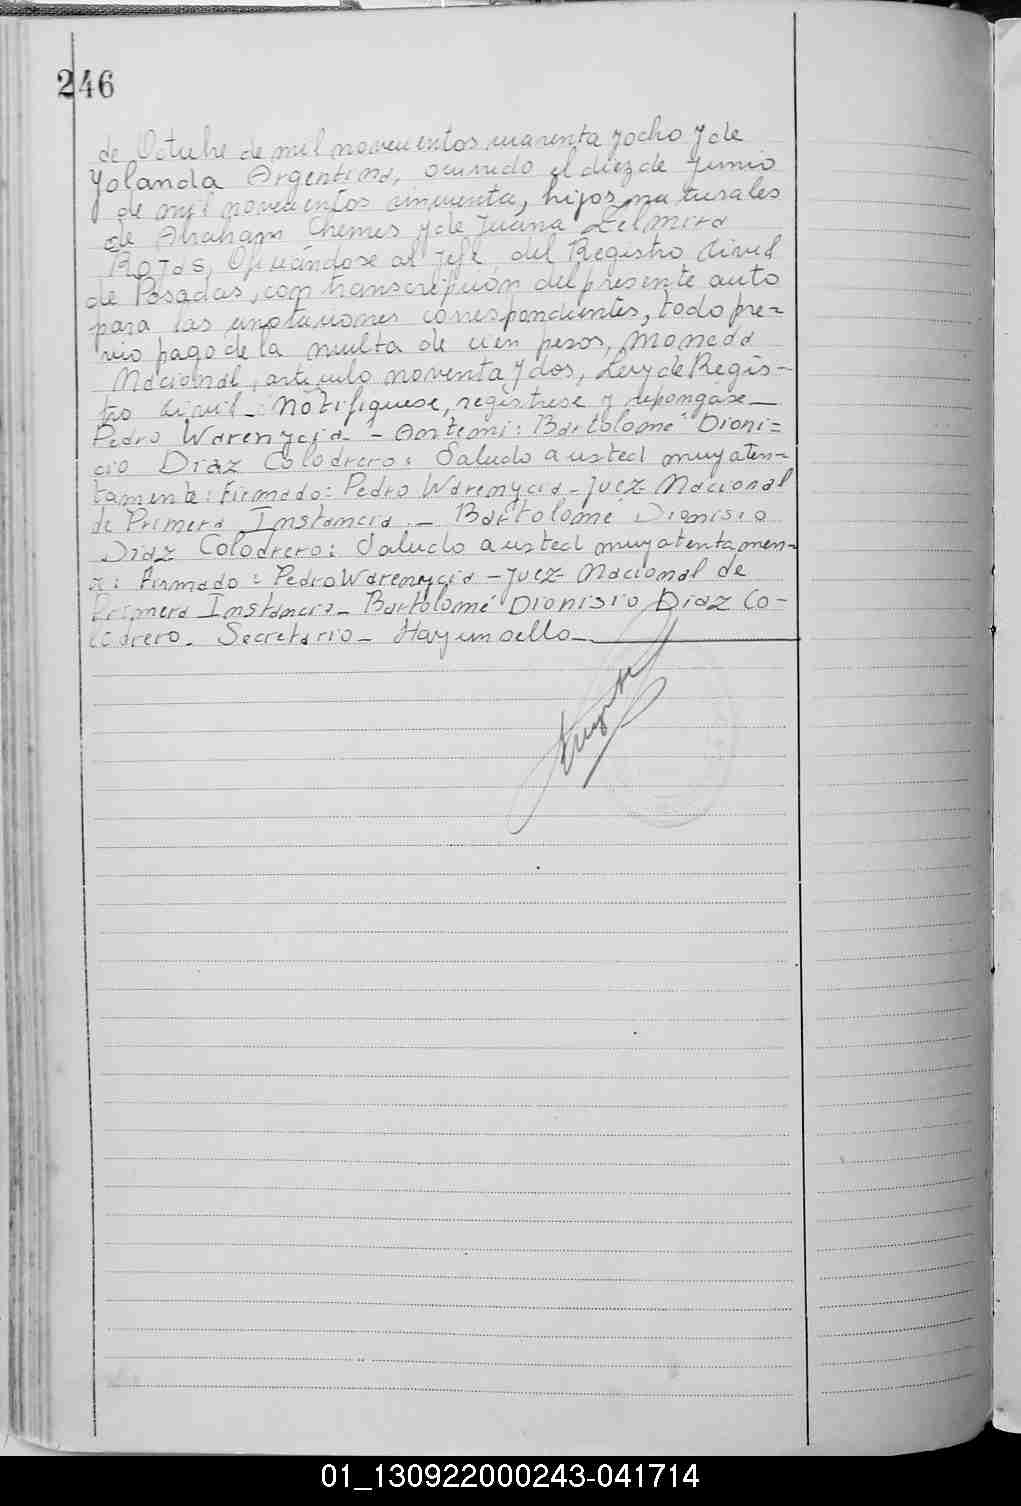 246
de Octubre de mil novecientos cuarenta y ocho y de
Yolanda Argentina, ocurrido el diez de Junio
de mil novecientos cincuenta, hijos naturales
de Abraham Chemes y de Juana Zelmira
Rojas, Oficiándose al Jefe del Registro Civil
de Posadas, con transcripción del presente auto
para las anotaciones correspondientes, todo pre=
vio pago de la multa de cien pesos, Moneda
Nacional, artículo noventa y dos, Ley de Regis-
tro Civil - Notifíquese, regístrese y repóngase_
Pedro Warenycia - Ante mi: Bartolomé Dioni=
cio Diaz Colodrero: Saludo a usted muy aten=
tamente: Firmado: Pedro Warenycia - Juez Nacional
de Primera Instancia. - Bartolomé Dionisio
Diaz Colodrero: Saludo a usted muy atentamen-
: Firmado: Pedro Warenycia - Juez Nacional de
Primera Instancia - Bartolomé Dionisio Diaz Co-
lodrero. Secretario - Hay un sello_
01_130922000243-041714